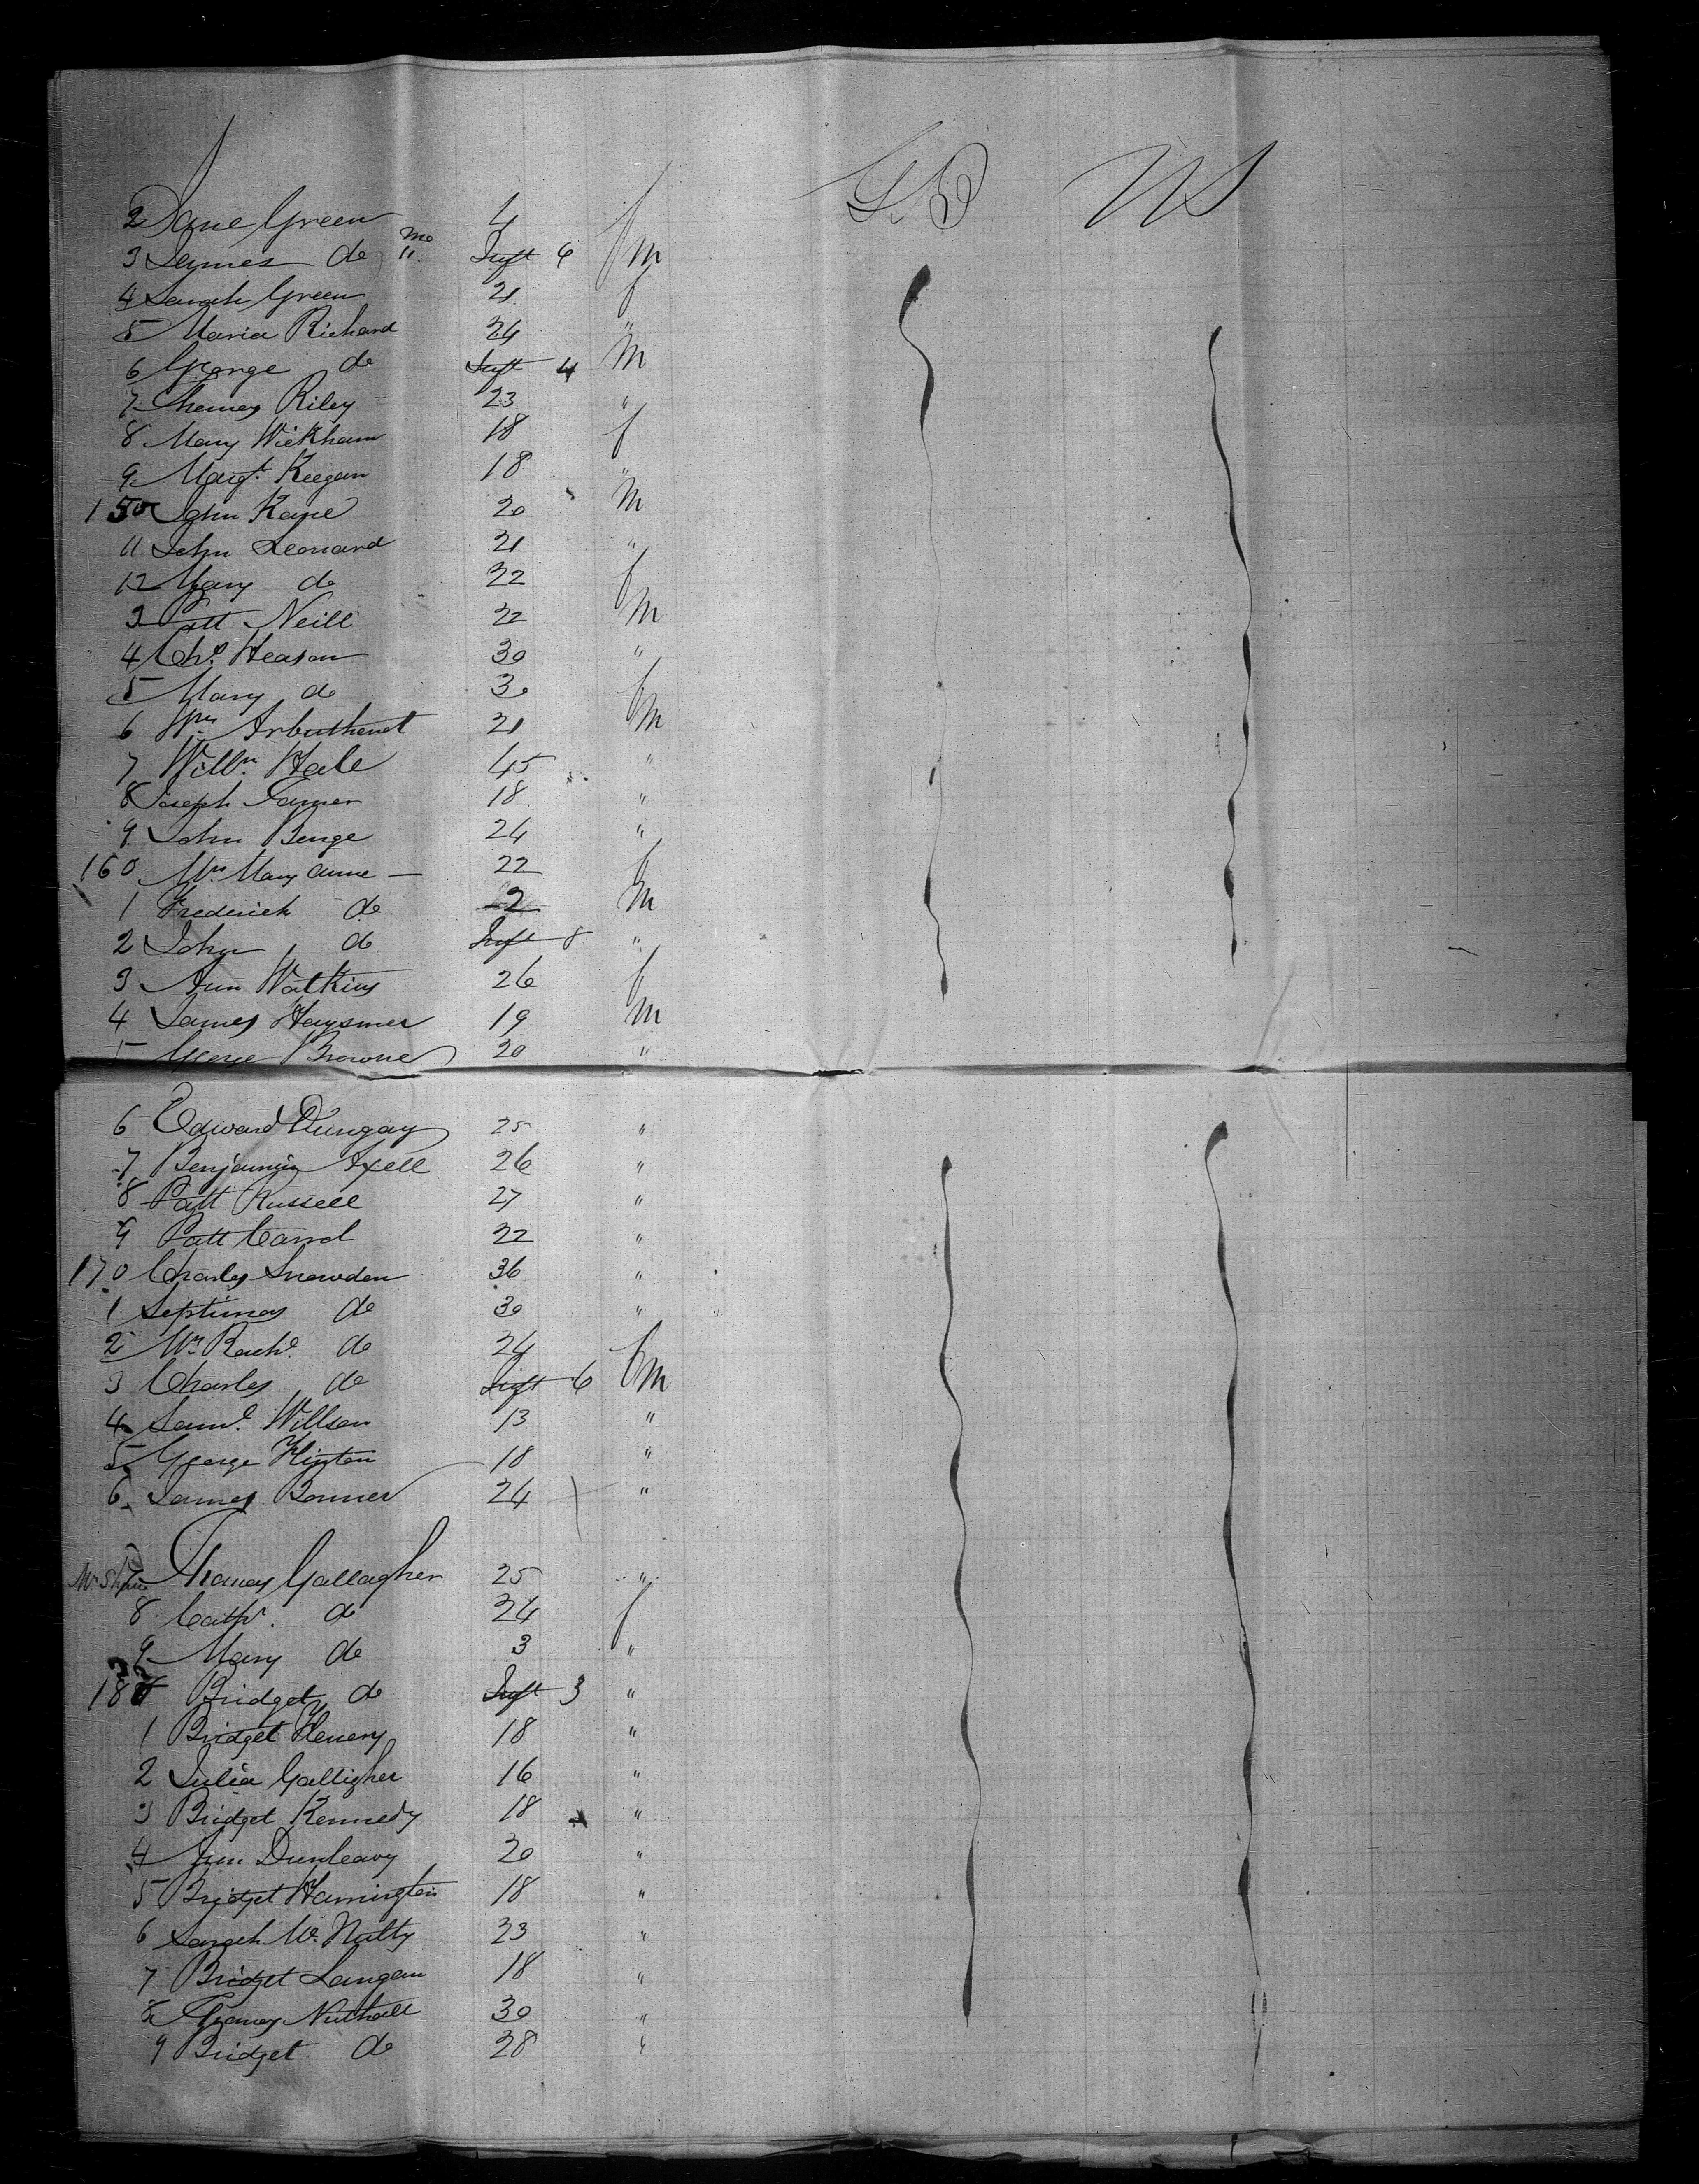 2 Jane Green 4 f G.B US
3 James do mo 11. Inft 6 m
4 Sarah Green 21 f
5 Maria Richard 24 "
6 George do Inft 4 m
7 Thomas Riley 23 "
8 Mary Wickham 18 f
9 Margt. Keegan 18 "
150 John Kane 20 m
11 John Leonard 21 "
12 Mary do 22 f
3 Patt Neill 22 m
4 Chs. Heason 30 "
5 Mary do 30 f
6 Wm Arbuthenot 21 m
7 Willm. Hale 45 "
8 Joseph 18 "
9 John Benge 24 "
160 Mrs. Mary Anne — 22 f
1 Frederick do 2 m
2 John do Inft 8 "
3 Ann Watkins 26 f
4 James Haysmer 19 m
5 George Browne 20 "
6 Edward Dungay 25 "
7 Benjamin Axell 26 "
8 Patt Russell 27 "
9 Patt Carrol 22 "
170 Charles Snowden 36 "
1 Septimas do 30 "
2 Mrs Rachl. do 24 f
3 Charles do Inft 6 m
4 Saml. Willson 13 "
5 George Hinton 18 "
6 James Bonner 24 "
7 Thomas Gallagher 25 "
8 Cathr. do 24 f
9 Mary do 3 "
180 Bridget do Inft 3 "
1 Bridget Henery 18 "
2 Julia Galligher 16 "
3 Bridget Kennedy 18 "
4 Ann Dunleavy 20 "
5 Bridget Harrington 18 "
6 Sarah Mc. Nulty 23 "
7 Bridget Langan 18 "
8 Thomas Nuthall 30 "
9 Bridget do 28 "